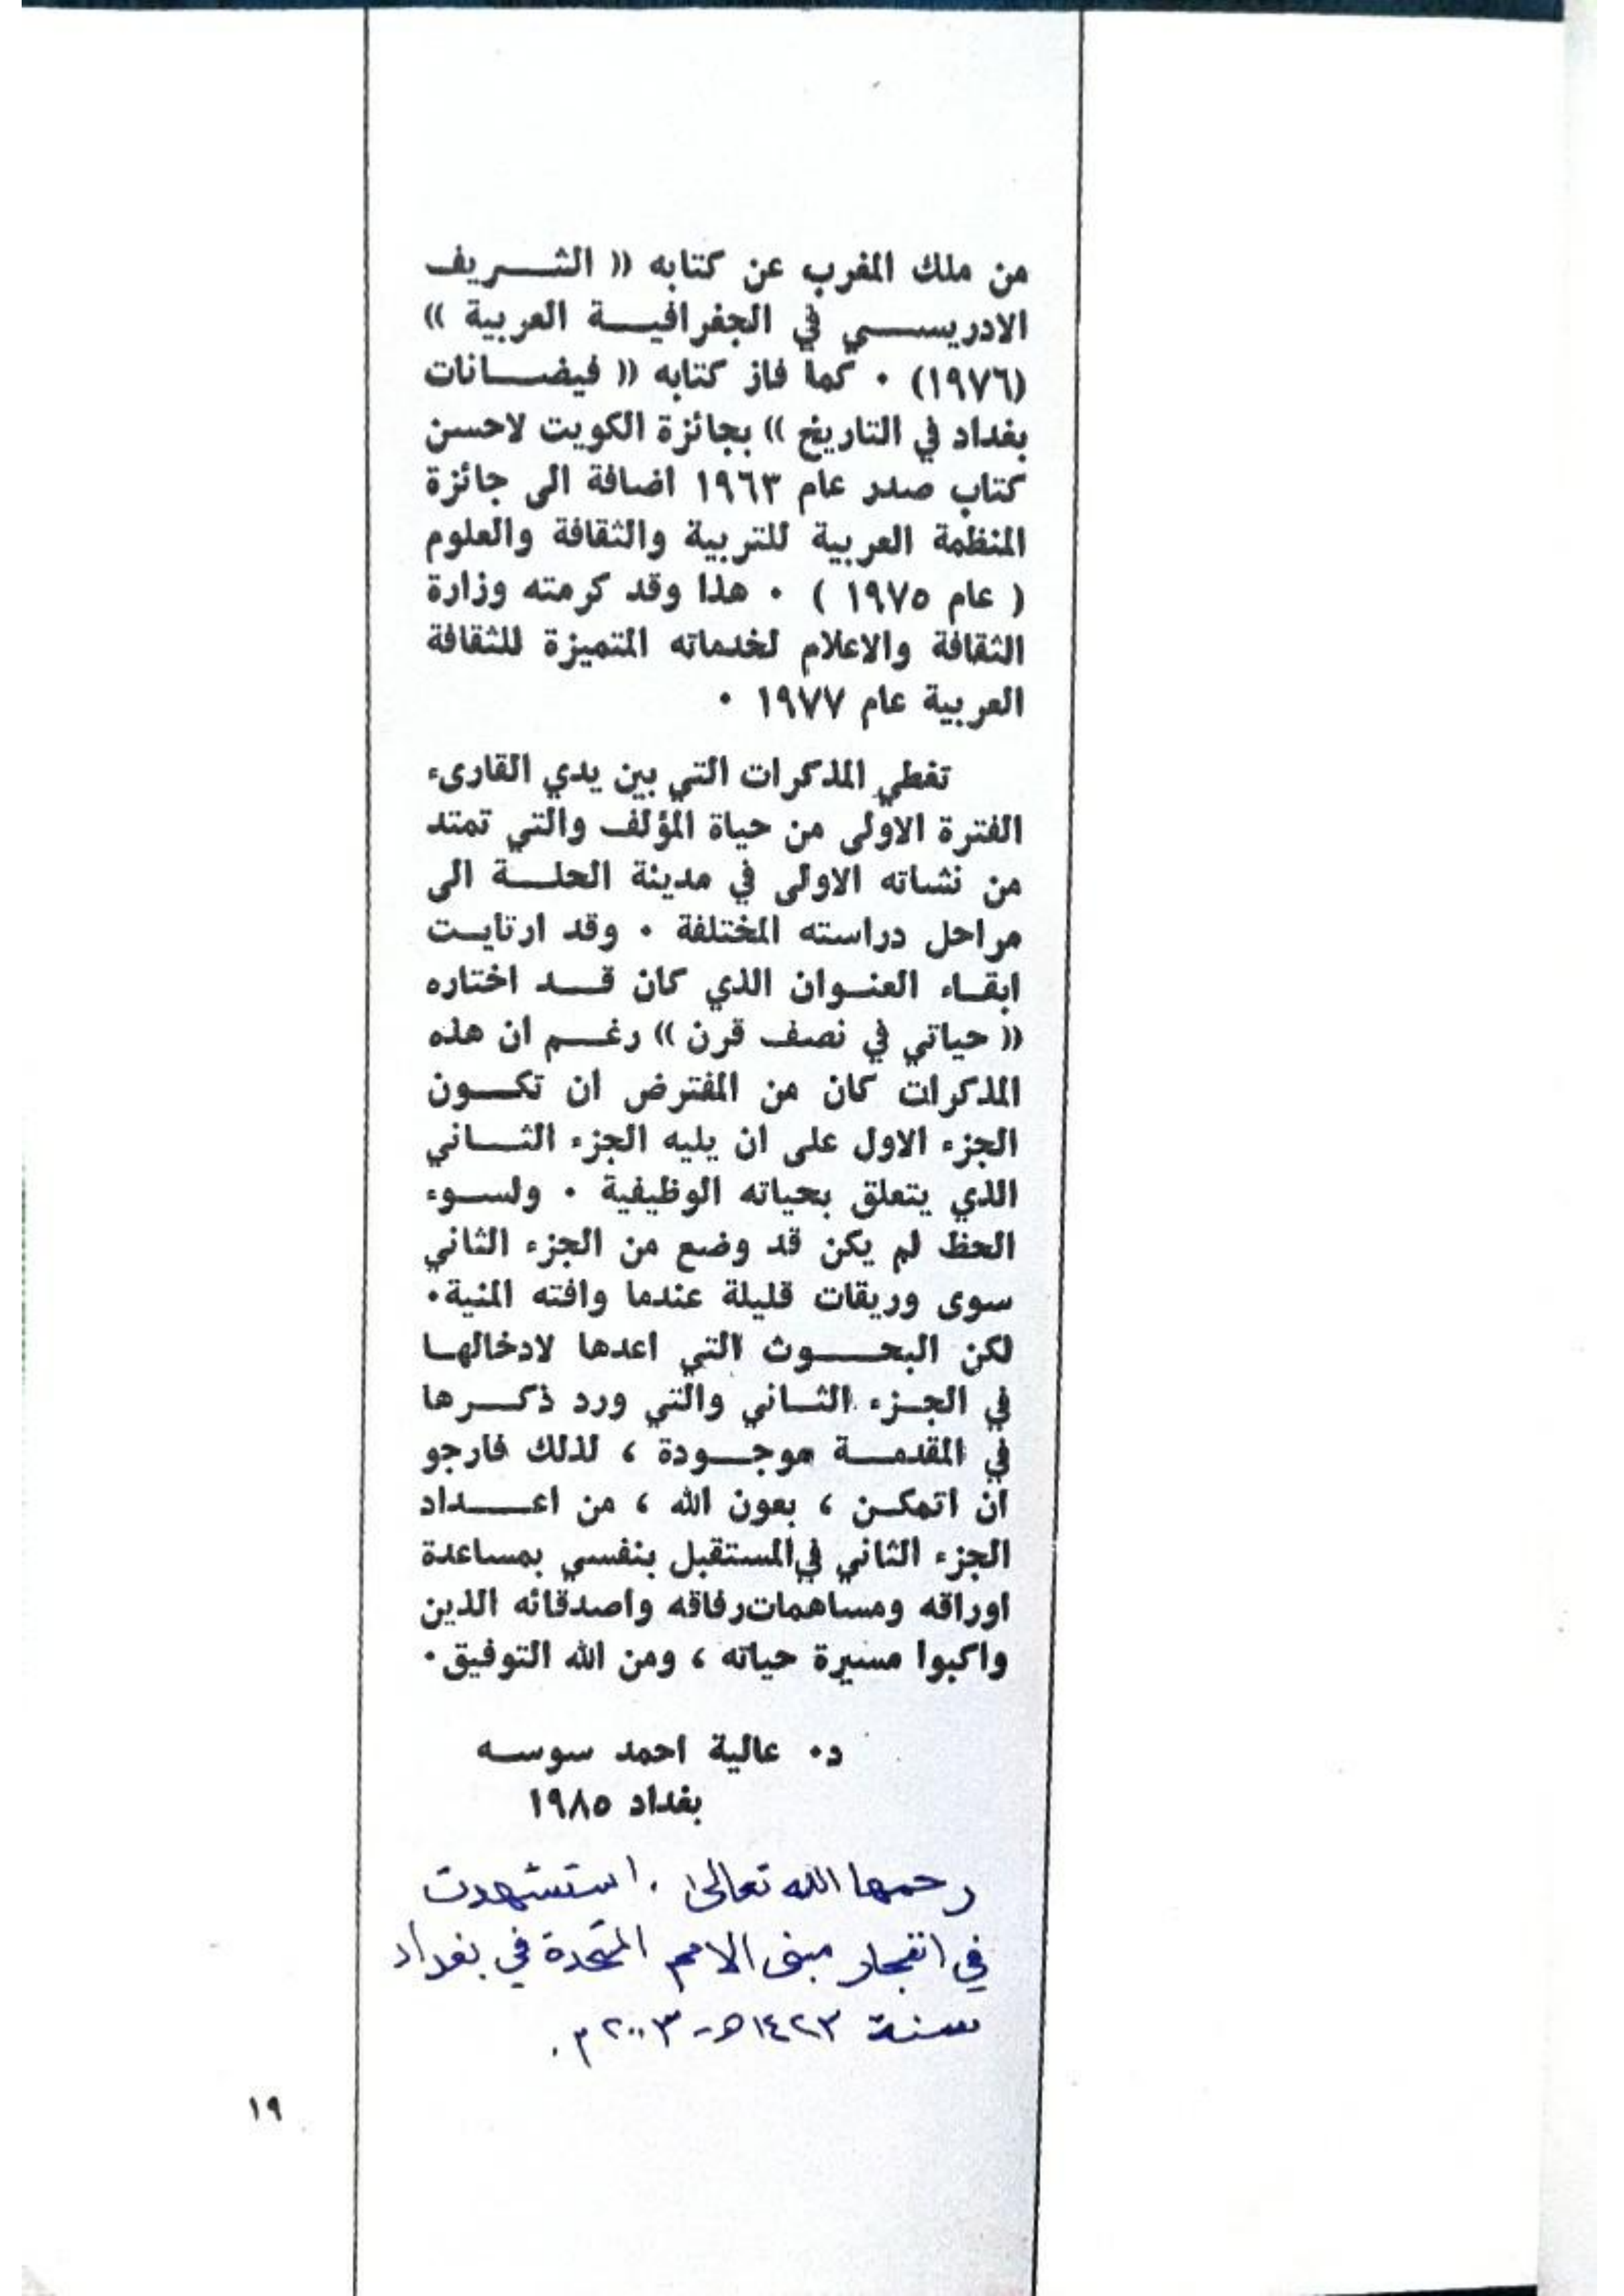 من ملك المغرب عن كتابه (( الشريف
الادريسي في الجغرافية العربية ))
(١٩٧٦) ٠ كما فاز كتابه (( فيضانات
بغداد في التاريخ )) بجائزة الكويت لاحسن
كتاب صدر عام ١٩٦٣ اضافة الى جائزة
المنظمة العربية للتربية والثقافة والعلوم
( عام ١٩٧٥ ) ٠ هذا وقد كرمته وزارة
الثقافة والاعلام لخدماته المتميزة للثقافة
العربية عام ١٩٧٧ ٠
تغطي المذكرات التي بين يدي القارىء
الفترة الاولى من حياة المؤلف والتي تمتد
من نشاته الاولى في مدينة الحلة الى
مراحل دراسته المختلفة ٠ وقد ارتايت
ابقاء العنوان الذي كان قد اختاره
(( حياتي في نصف قرن )) رغم ان هذه
المذكرات كان من المفترض ان تكون
الجزء الاول على ان يليه الجزء الثاني
الذي يتعلق بحياته الوظيفية ٠ ولسوء
الحظ لم يكن قد وضع من الجزء الثاني
سوى وريقات قليلة عندما وافته المنية٠
لكن البحوث التي اعدها لادخالها
في الجزء الثاني والتي ورد ذكرها
في المقدمة موجودة ، لذلك فارجو
ان اتمكن ، بعون الله ، من اعداد
الجزء الثاني في المستقبل بنفسي بمساعدة
اوراقه ومساهمات رفاقه واصدقائه الذين
واكبوا مسيرة حياته ، ومن الله التوفيق٠
د٠ عالية احمد سوسه
بغداد ١٩٨٥
رحمها الله تعالى . استشهدت
في انفجار مبنى الامم المتحدة في بغداد
سنة ١٤٢٣هـ - ٢٠٠٣م .
١٩